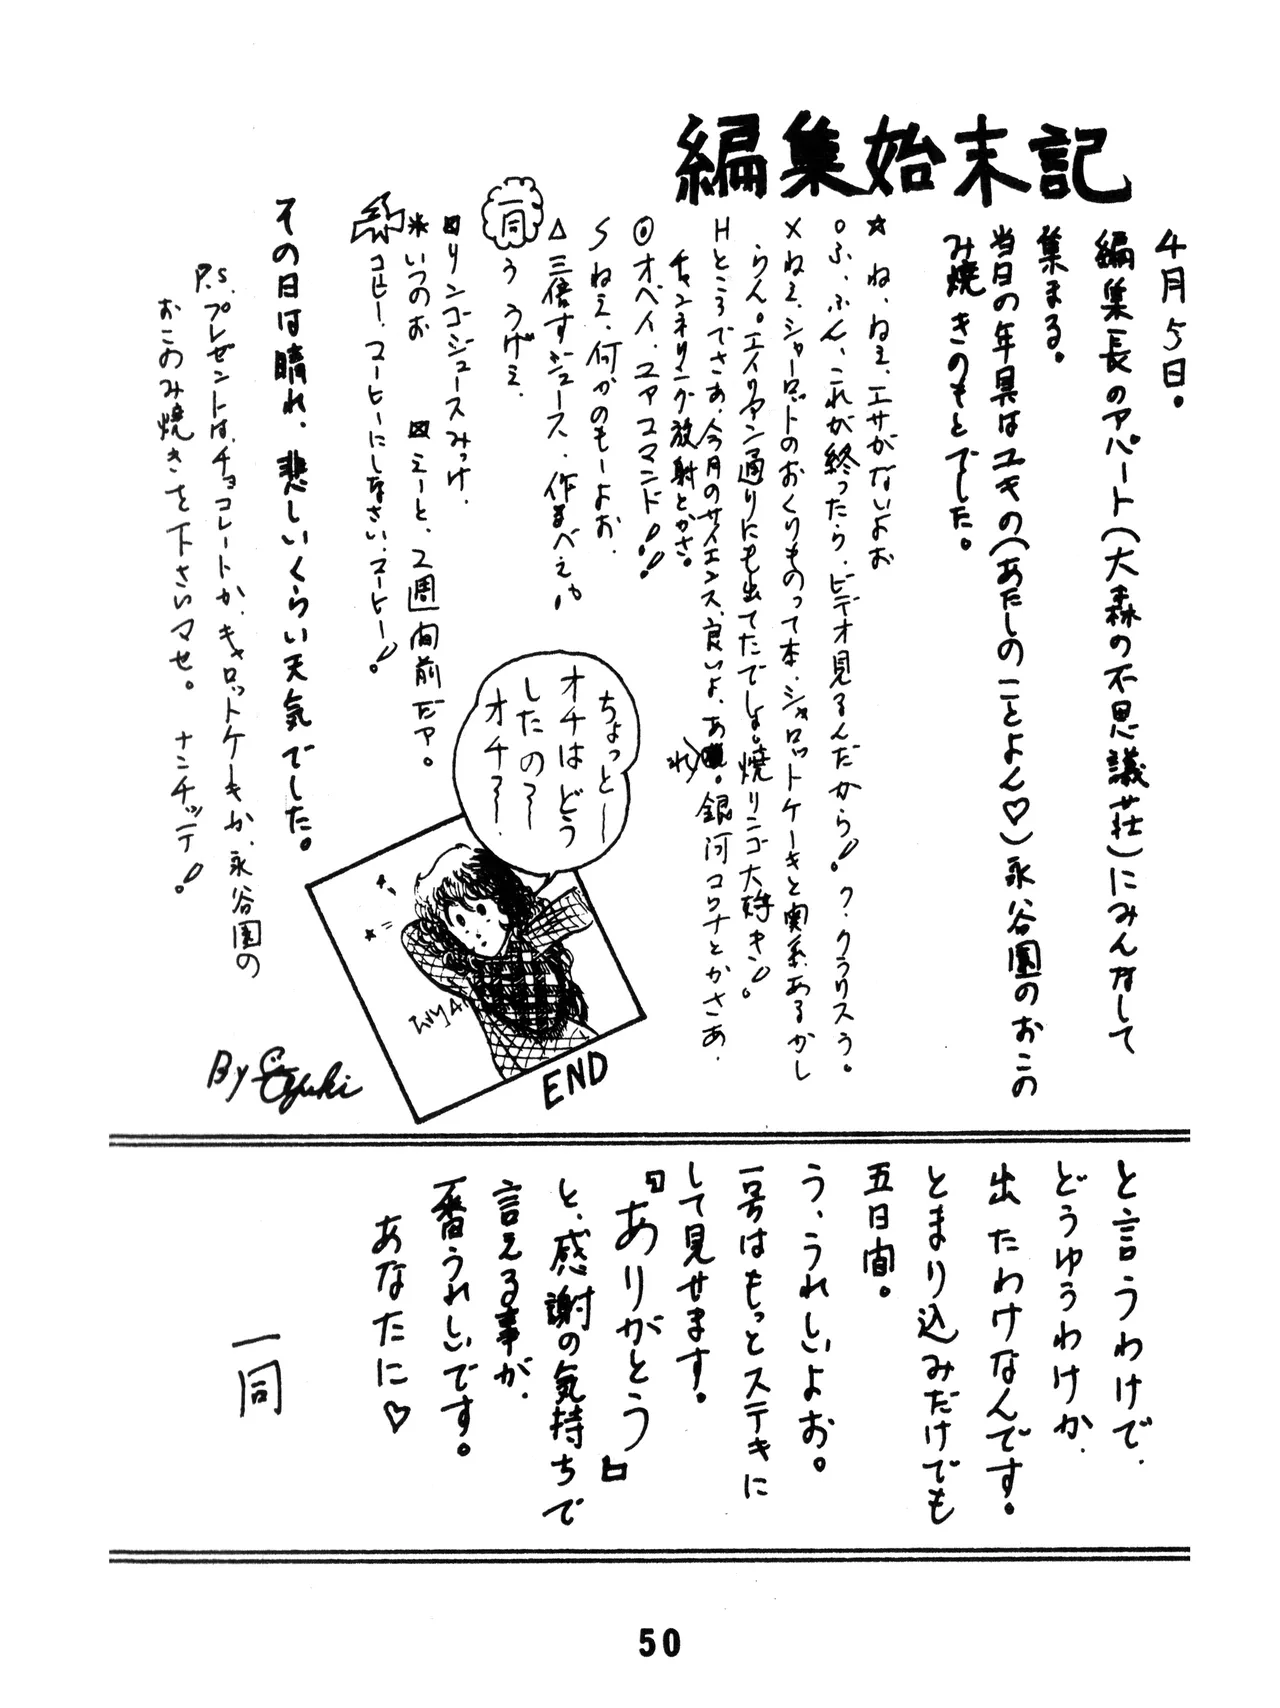 編集始末記
4月5日。
編集長のアパート(大森の不思議荘)にみんなして
集まる。
当日の年具はユキの(あたしのことよん♡)永谷園のおこの
み焼きのもとでした。
★ね、ねえ、エサがないよお
○ふ、ふん、これが終ったら、ビデオ見るんだから! ク、クラリスう。
×ねえ、シャーロットのおくりものって本、シャロットケーキと関系あるかし
らん。エイリアン通りにも出てたでしょ。焼リンゴ大好き!。
Hところでさあ、今月のサイエンス、良いよ、あれ。銀河コロナとかさあ、
チャンネリング放射とかさ。
◎オベイ、ユアコマンド!!
Sねえ、何かのもーよお、
△三倍すジュース、作るべえ
一同 う うげえ、
リンゴジュースみっけ、
*いつのお えーと、2週間前だァ。
コピー、コーヒーにしなさい、コーヒー!
その日は晴れ、悲しいくらい天気でした。
P.S.プレゼントは、チョコレートか、キャロットケーキか、永谷園の
おこのみ焼きを下さいマセ。 ナンチッテ!
ちょっとー
オチはどう
したの〜
オチ〜〜
END
By
と言うわけで、
どうゆうわけか、
出たわけなんです。
とまり込みだけでも
五日間。
う、うれしいよお。
一号はもっとステキに
して見せます。
『ありがとう』
と、感謝の気持ちで
言える事が、
一番うれしいです。
あなたに♡
一同
50